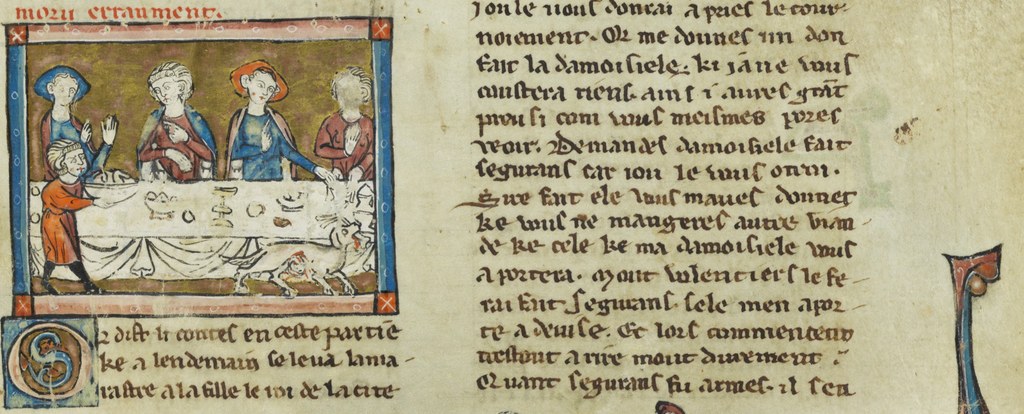 morir erraument.
Or dist li contes en ceste partie
ke a lendemain se leva lama
rastre a la fille le roi de la cite
ion le vous donrai apries le tour
noiement. Or me dounes un don
fait la damoisiele. ki ia ne vous
coustera riens. ains i aures grāt
preu si com vous meismes pores
veoir. Demandes damoisiele fait
segurans car iou le vous otroi.
Sire fait ele vous maves dounet
ke vous ne mangeres autre vian
de ke cele ke ma damoisiele vous
aportera. Mout volentiers le fe
rai fait segurans. sele men apor
te a devise. Et lors commencent
trestout a rire mout durement.
Quant segurans fu armes. il sen